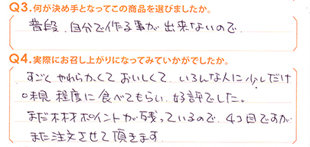 Q3.何が決め手となってこの商品を選びましたか?
普段、自分で作る事が出来ないので
Q4.実際にお召し上がりになってみていかがでしたか。
すごくやわらかくておいしくて、いろんな人に少しだけ
味見程度に食べてもらい、好評でした。
まだポイントが残っているので、4つ目ですが
また注文させて頂きます